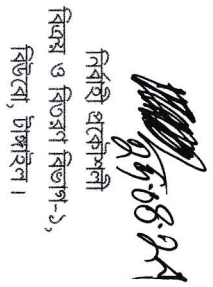 ২৮.০৪.২৫
নির্বাহী প্রকৌশলী
বিক্রয় ও বিতরণ বিভাগ-১,
বিউবো, টাঙ্গাইল।